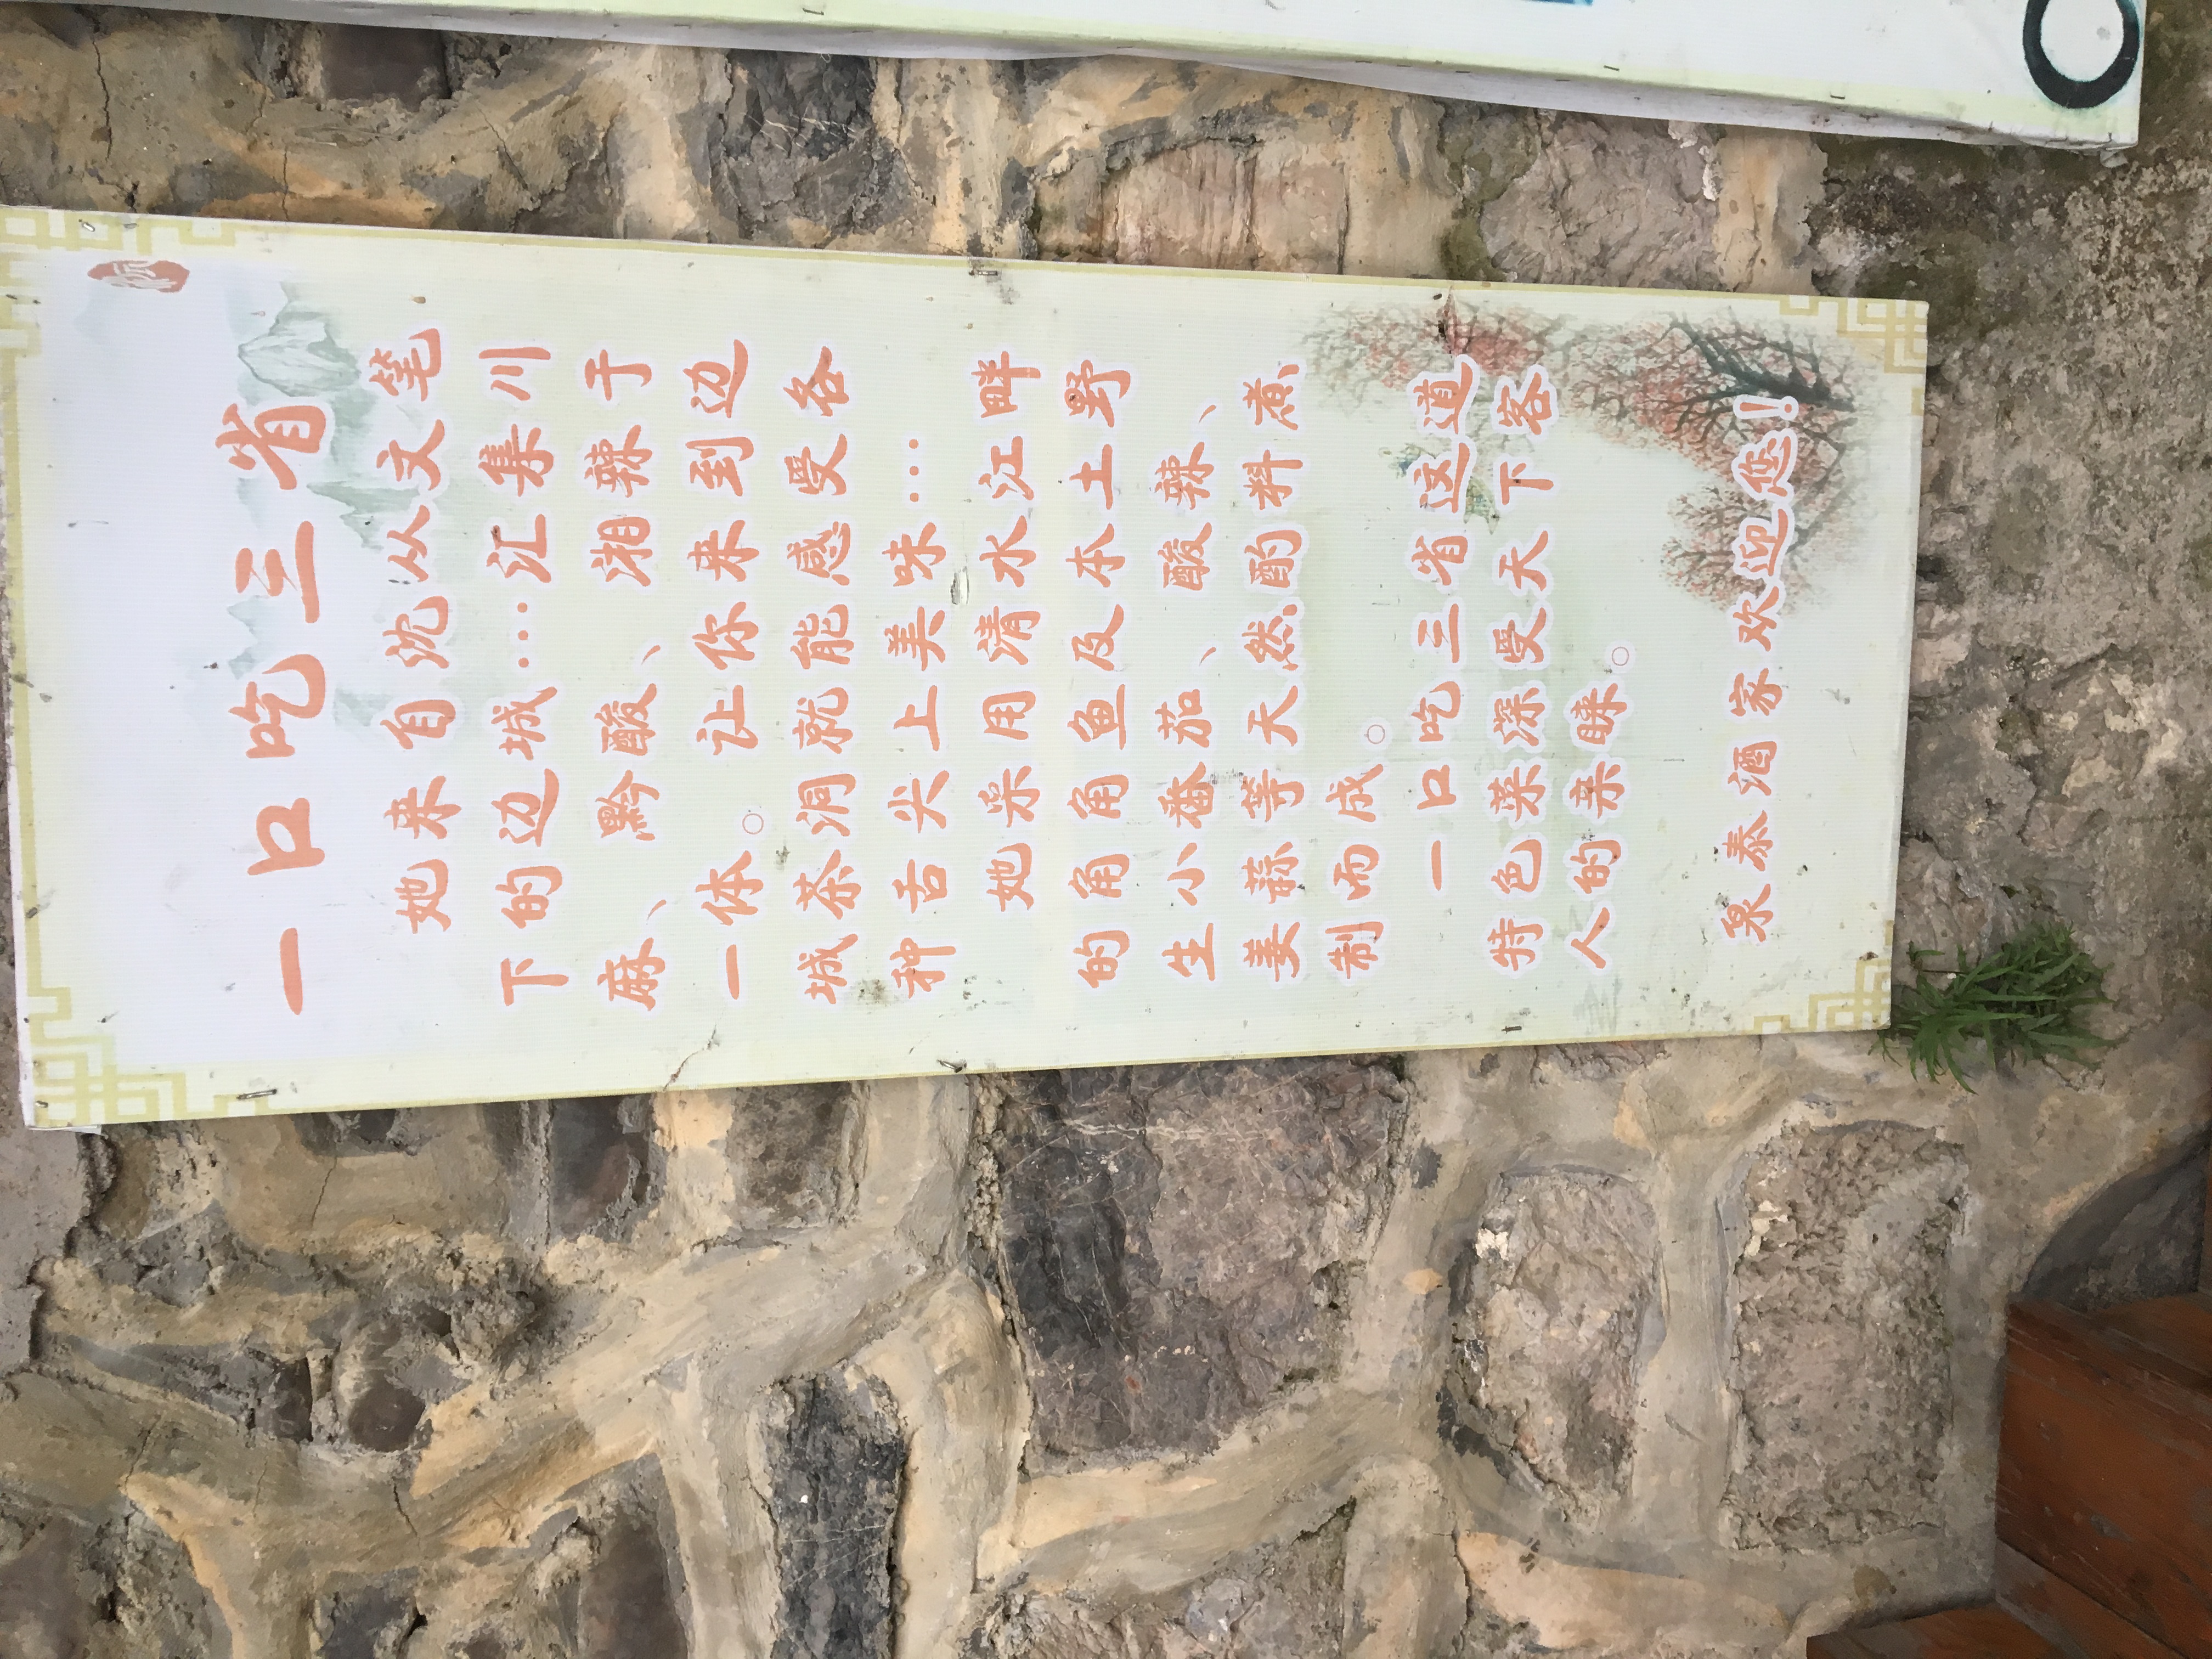 一口吃三省
她来自沈从文笔
下的边城…汇集川
麻、黔酸、湘辣于
一体。让你来到边
城茶洞就能感受各
种舌尖上美味…
她采用清水江畔
的角角鱼及本土野
生小番茄、酸辣、
姜蒜等天然酌料煮
制而成。
一口吃三省这道
特色菜深受天下客
人的亲睐。
泉泰酒家欢迎您!